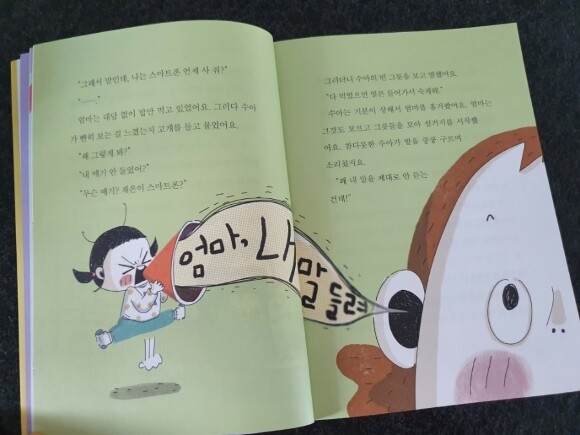 "그래서 말인데, 나는 스마트폰 언제 사 줘?"
"……."
엄마는 대답 없이 밥만 먹고 있었어요. 그러다 수아
가 빤히 보는 걸 느꼈는지 고개를 들고 물었어요.
"왜 그렇게 봐?"
"내 얘기 안 들었어?"
"무슨 얘기? 채은이 스마트폰?"
엄마, 내
말 들려
그러더니 수아의 빈 그릇을 보고 말했어요.
"다 먹었으면 얼른 들어가서 숙제해."
수아는 기분이 상해서 엄마를 흘겨봤어요. 엄마는
그것도 모르고 그릇들을 모아 설거지를 시작했
어요. 참다못한 수아가 발을 쿵쿵 구르며
소리쳤지요.
"왜 내 말을 제대로 안 듣는
건데!"